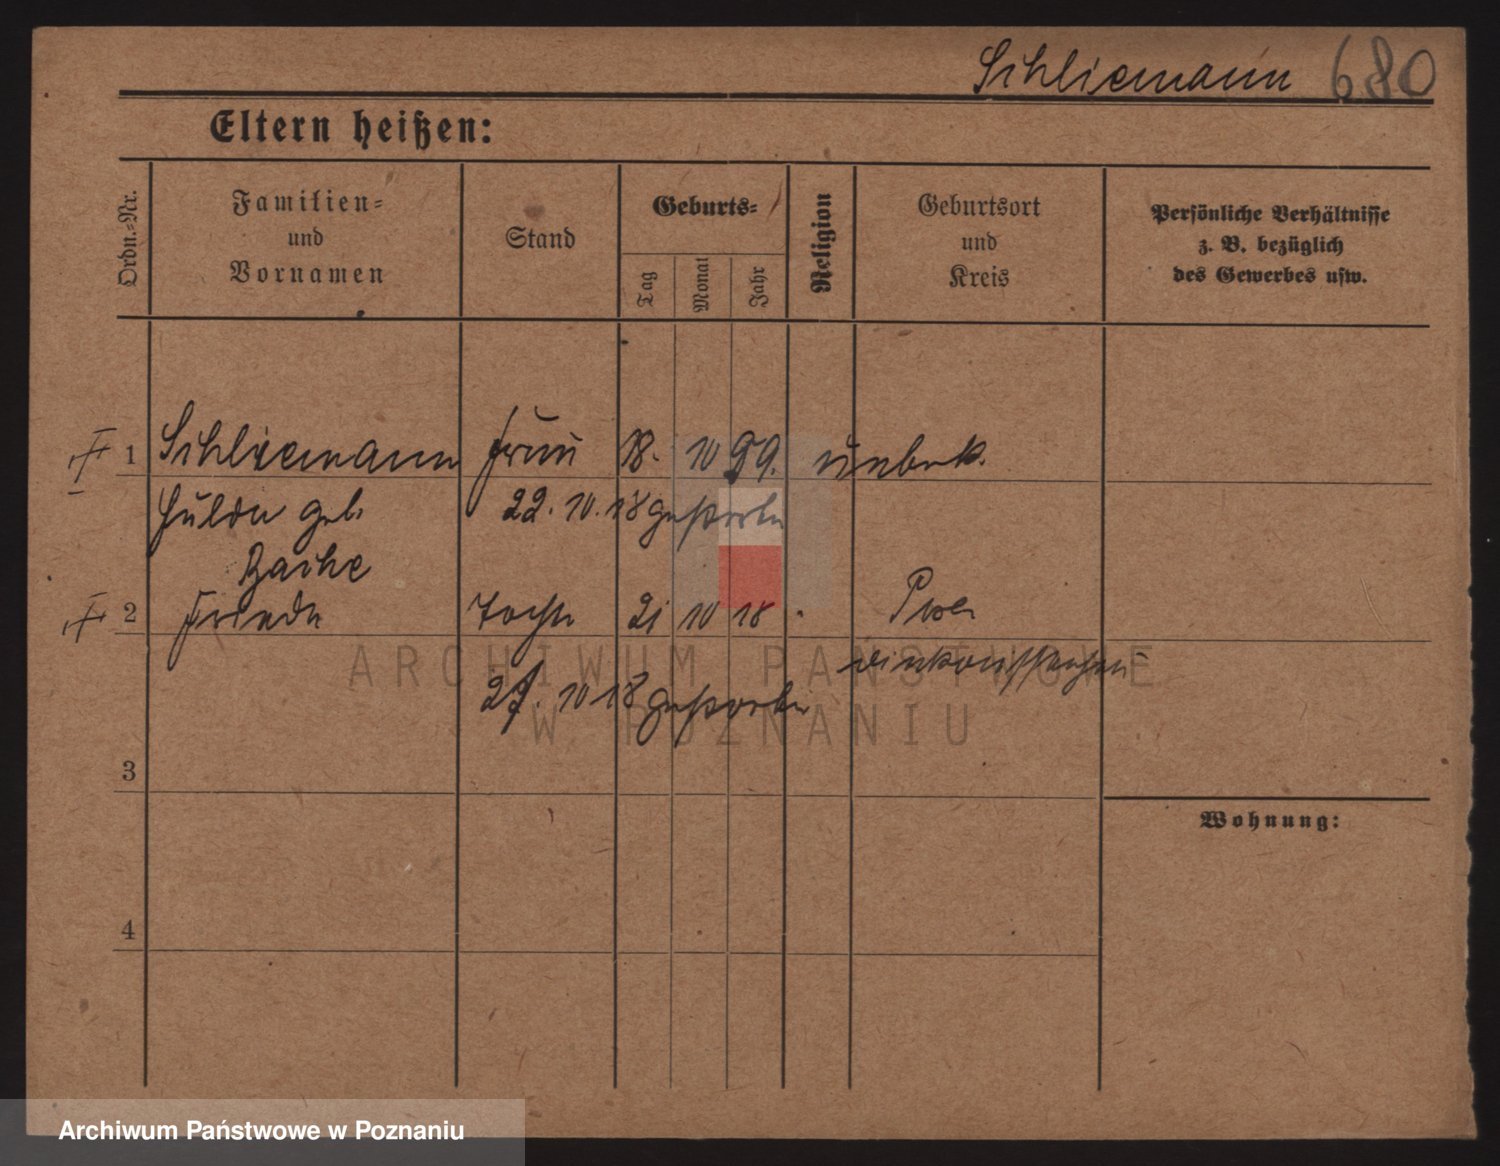 Schliemann 680
Eltern heißen:
Ordn.-Nr.
Familien-
und
Vornamen
Stand
Geburts-
Tag
Monat
Jahr
Religion
Geburtsort
und
Kreis
Persönliche Verhältnisse
z. B. bezüglich
des Gewerbes usw.
1 Schliemann Frau 18. 10 99. unbek.
Hulda geb. 22. 10. 18 gestorben
2 Frieda Tocht. 21 10 18 Posen
27. 10 18 gestorben
3
4
Wohnung:
ARCHIWUM PAŃSTWOWE
W POZNANIU
Archiwum Państwowe w Poznaniu